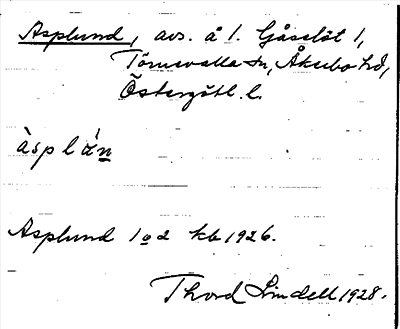 Asplund, avs. å l. Gåsslöt 1,
Törnevalla sn, Åkerbo hd,
Östergötl. l.
àsplán
Asplund 1 o 2 kb 1926.
Thord Lindell 1928.